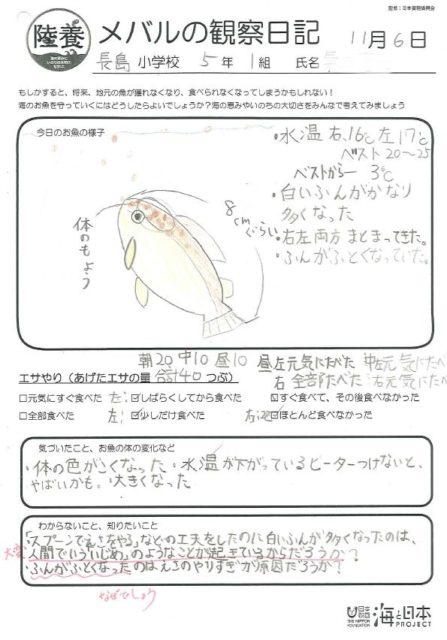 監修：(一社)日本養殖振興会
陸養
メバルの観察日記
11月6日
長島 小学校 5年 1組 氏名
もしかすると、将来、地元の魚が獲れなくなり、食べられなくなってしまうかもしれない！
海のお魚を守っていくにはどうしたらよいでしょうか？海の恵みやいのちの大切さをみんなで考えてみましょう
今日のお魚の様子
・水温 右、16℃ 左17℃
ベスト20〜25
ベストから－3℃
・白いふんがかなり
多くなった
・右左両方まとまってきた。
・ふんがふとくなっていた。
8cmぐらい
体のもよう
朝20 中10 昼10
昼左元気にたべた 中左元気にたべ
右全部たべた 右元気にた
エサやり（あげたエサの量 合計40つぶ）
□元気にすぐ食べた 左:□しばらくしてから食べた □すぐ食べて、その後食べなかった
□全部食べた 左:□少しだけ食べた □ほとんど食べなかった
気づいたこと、お魚の体の変化など
・体の色がこくなった ・水温が下がっているヒーターつけないと、
やばいかも。・大きくなった
わからないこと、知りたいこと
「スプーンでえさをやる」などの工夫をしたのに白いふんが多くなったのは、
人間でいう"いじめ"のようなことが起きているからだろうか？
・ふんがふとくなったのはえさのやりすぎが原因だろうか？
なぜでしょう
日本財団
THE NIPPON FOUNDATION
海と日本
PROJECT